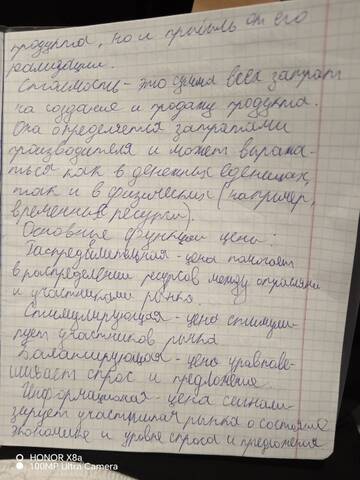 продукта, но и прибыль от его
реализации.
Стоимость - это сумма всех затрат
на создание и продажу продукта.
Она определяется затратами
производителя и может выража-
ться как в денежных единицах,
так и в физических (например,
временная ресурсы).
Основные функции цены:
Распределительная - цена помогает
в распределении ресурсов между отраслями
и участниками рынка.
Стимулирующая - цена стимули-
рует участников рынка
Балансирующая - цена уравнове-
шивает спрос и предложение.
Информационая - цена сигнали-
зирует участникам рынка о состояние
экономике и уровне спроса и предложения
HONOR X8a
100MP Ultra Camera